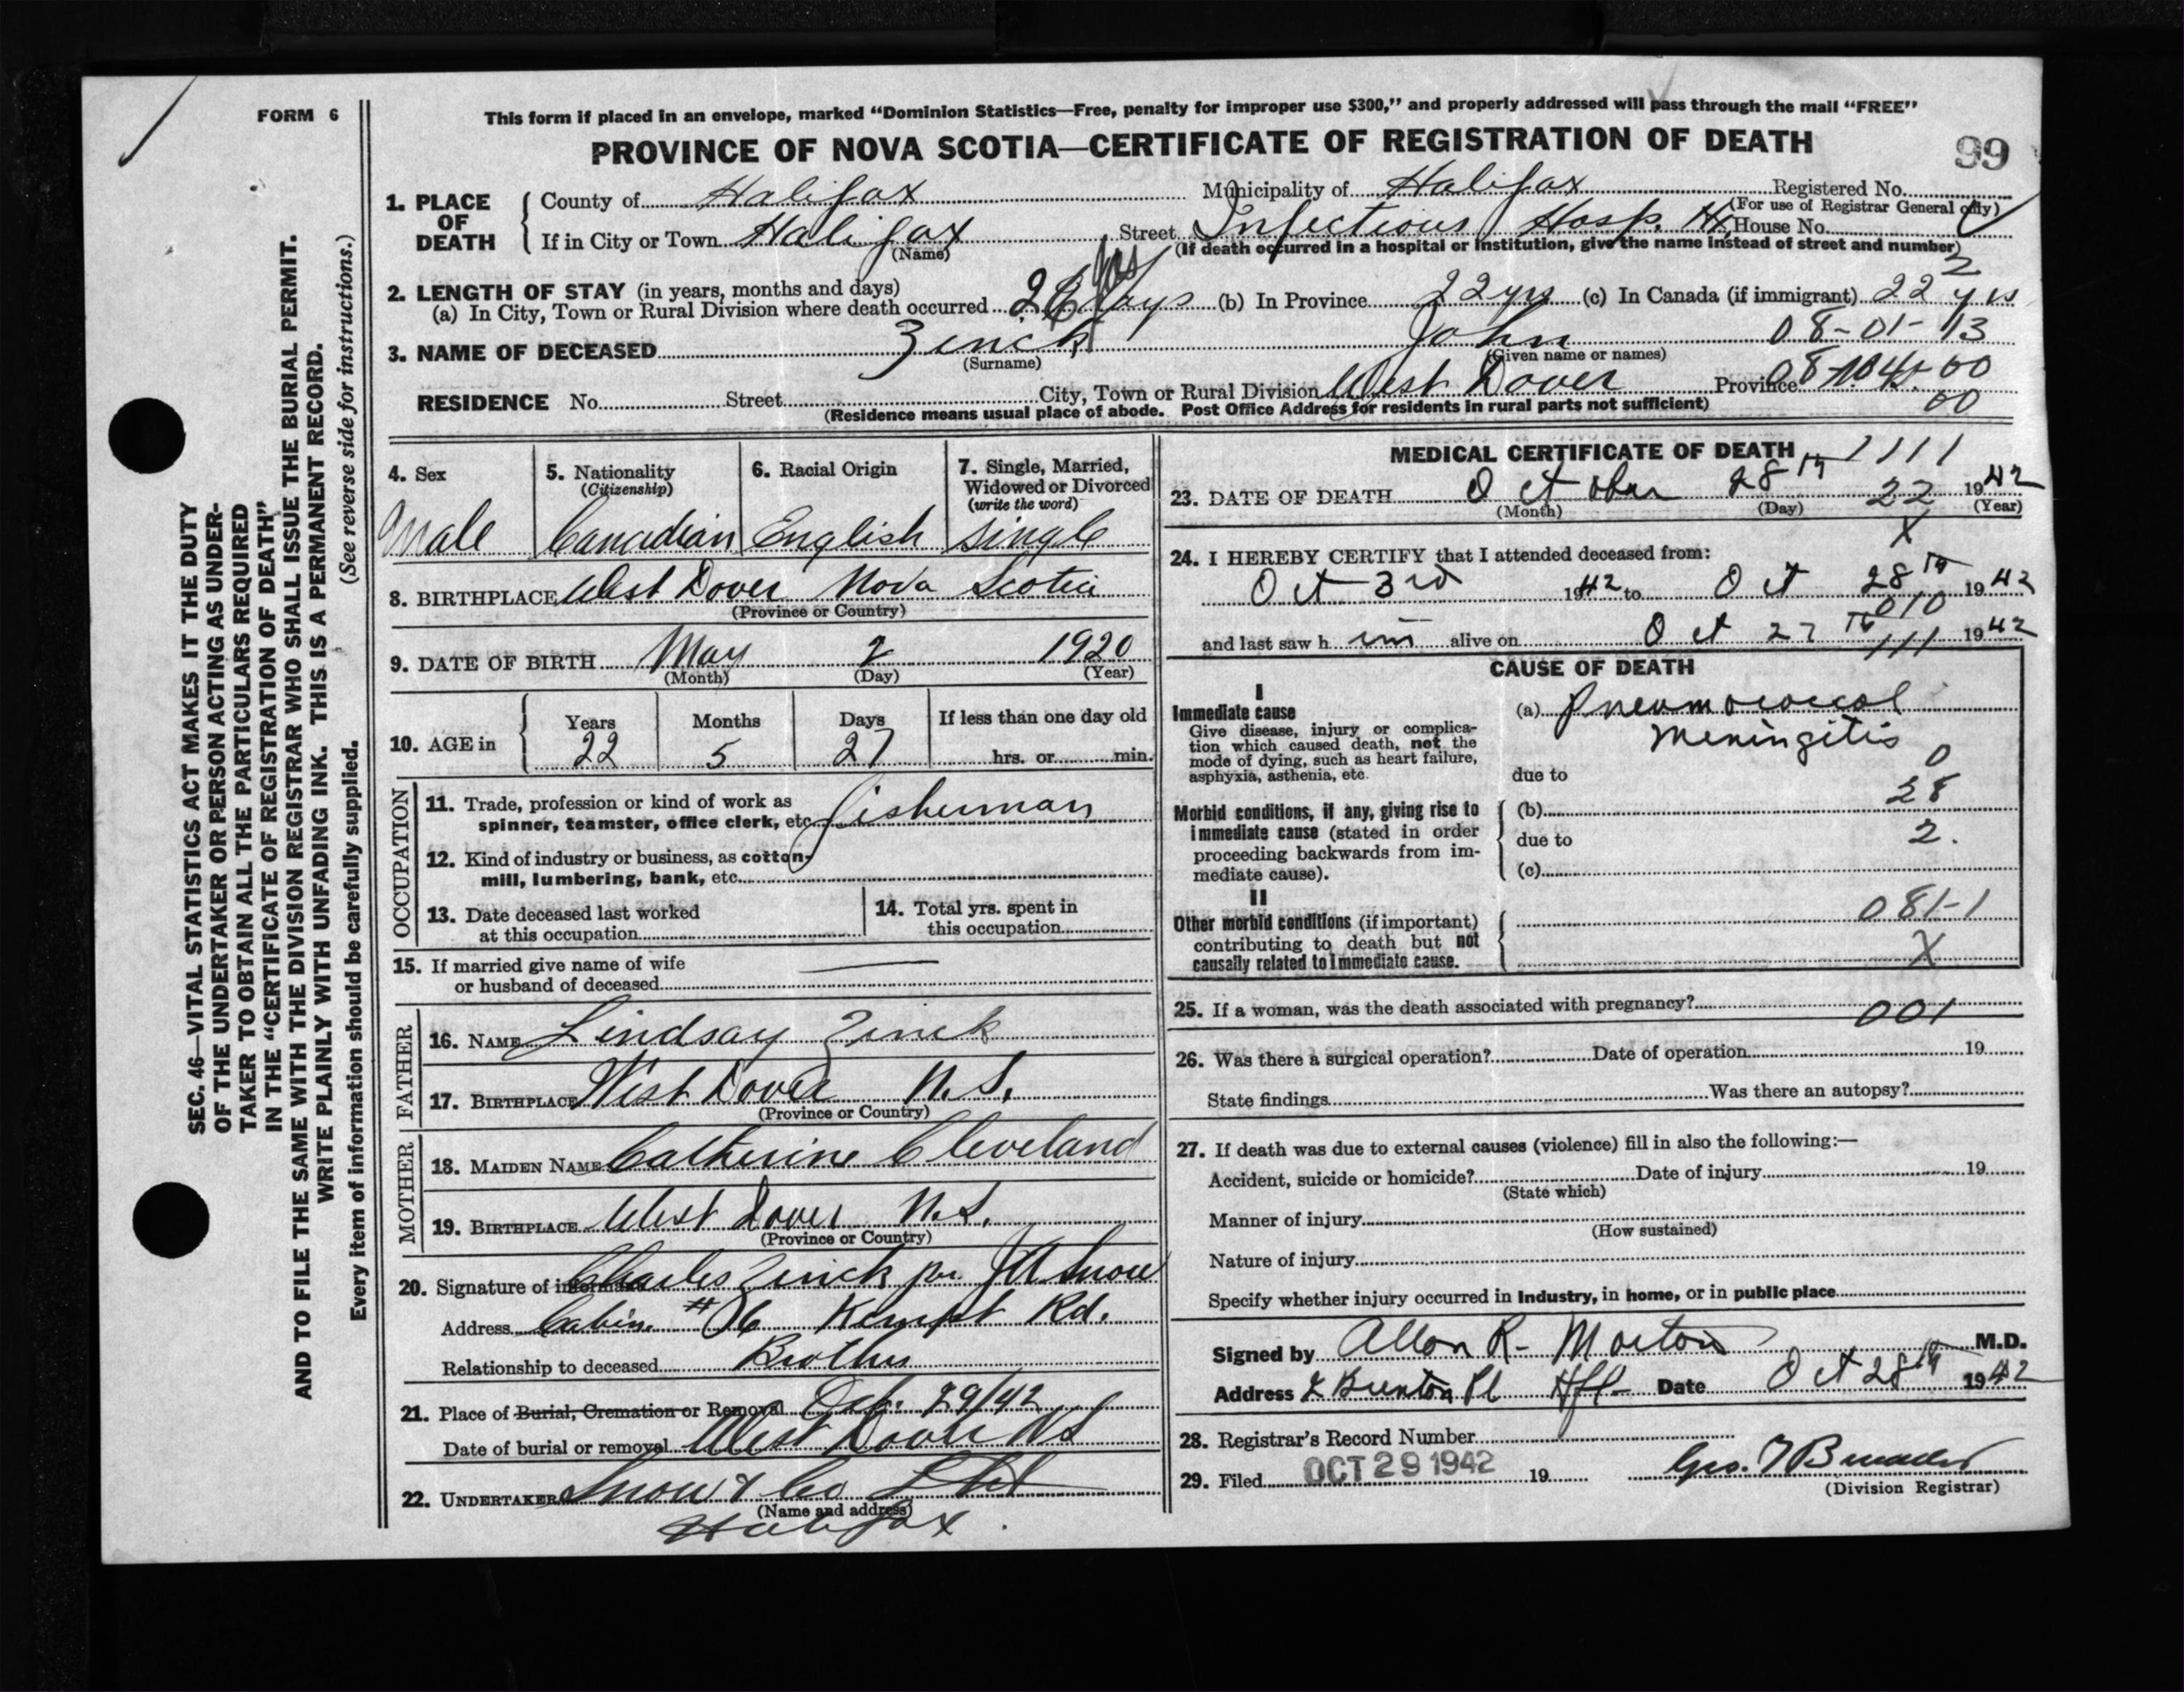 FORM 6
This form if placed in an envelope, marked “Dominion Statistics—Free, penalty for improper use $300,” and properly addressed will pass through the mail “FREE”
PROVINCE OF NOVA SCOTIA—CERTIFICATE OF REGISTRATION OF DEATH
99
1. PLACE OF DEATH
County of Halifax Municipality of Halifax Registered No.
(For use of Registrar General only)
If in City or Town Halifax Street Infectious Hosp. Hx House No.
(Name) (If death occurred in a hospital or institution, give the name instead of street and number)
2. LENGTH OF STAY (in years, months and days)
2
(a) In City, Town or Rural Division where death occurred 26 days (b) In Province 22 yrs (c) In Canada (if immigrant) 22 yrs
3. NAME OF DECEASED Zinck John 08-01-13
(Surname) (Given name or names)
RESIDENCE No. Street City, Town or Rural Division West Dover Province
00
(Residence means usual place of abode. Post Office Address for residents in rural parts not sufficient)
4. Sex
Male
5. Nationality
(Citizenship)
Canadian
6. Racial Origin
English
7. Single, Married,
Widowed or Divorced
(write the word)
Single
8. BIRTHPLACE West Dover Nova Scotia
(Province or Country)
9. DATE OF BIRTH May 2 1920
(Month) (Day) (Year)
10. AGE in
Years Months Days If less than one day old
22 5 27 hrs. or min.
OCCUPATION
11. Trade, profession or kind of work as
spinner, teamster, office clerk, etc. fisherman
12. Kind of industry or business, as cotton-
mill, lumbering, bank, etc.
13. Date deceased last worked
at this occupation
14. Total yrs. spent in
this occupation
15. If married give name of wife
or husband of deceased
FATHER
16. NAME Lindsay Zinck
17. BIRTHPLACE West Dover N.S.
(Province or Country)
MOTHER
18. MAIDEN NAME Catherine Cleveland
19. BIRTHPLACE West Dover N.S.
(Province or Country)
20. Signature of informant Charles Zinck per J A Snow
Address Cabin #16 Kempt Rd.
Relationship to deceased Brother
21. Place of Burial, Cremation or Removal Oct. 29/42
Date of burial or removal West Dover N S
22. UNDERTAKER Snow & Co Ltd
(Name and address)
Halifax.
MEDICAL CERTIFICATE OF DEATH 1111
23. DATE OF DEATH October 28th 22 1942
(Month) (Day) (Year)
X
24. I HEREBY CERTIFY that I attended deceased from:
Oct 3rd 1942 to Oct 28th 1942
010
and last saw h im alive on Oct 27th 1942
111
CAUSE OF DEATH
I
Immediate cause
Give disease, injury or complica-
tion which caused death, not the
mode of dying, such as heart failure,
asphyxia, asthenia, etc.
(a) Pneumococcal
Meningitis
0
due to
28
Morbid conditions, if any, giving rise to
immediate cause (stated in order
proceeding backwards from im-
mediate cause).
(b)
due to
2.
(c)
II
Other morbid conditions (if important)
contributing to death but not
causally related to immediate cause.
081-1
X
25. If a woman, was the death associated with pregnancy?
001
26. Was there a surgical operation? Date of operation 19
State findings Was there an autopsy?
27. If death was due to external causes (violence) fill in also the following:—
Accident, suicide or homicide? Date of injury 19
(State which)
Manner of injury
(How sustained)
Nature of injury
Specify whether injury occurred in Industry, in home, or in public place
Signed by Allan R. Morton M.D.
Address 2 Brenton Pl Hfx Date Oct 28th 1942
28. Registrar's Record Number
29. Filed OCT 29 1942 19
(Division Registrar)
SEC. 46—VITAL STATISTICS ACT MAKES IT THE DUTY
OF THE UNDERTAKER OR PERSON ACTING AS UNDER-
TAKER TO OBTAIN ALL THE PARTICULARS REQUIRED
IN THE “CERTIFICATE OF REGISTRATION OF DEATH”
AND TO FILE THE SAME WITH THE DIVISION REGISTRAR WHO SHALL ISSUE THE BURIAL PERMIT.
WRITE PLAINLY WITH UNFADING INK. THIS IS A PERMANENT RECORD.
Every item of information should be carefully supplied. (See reverse side for instructions.)